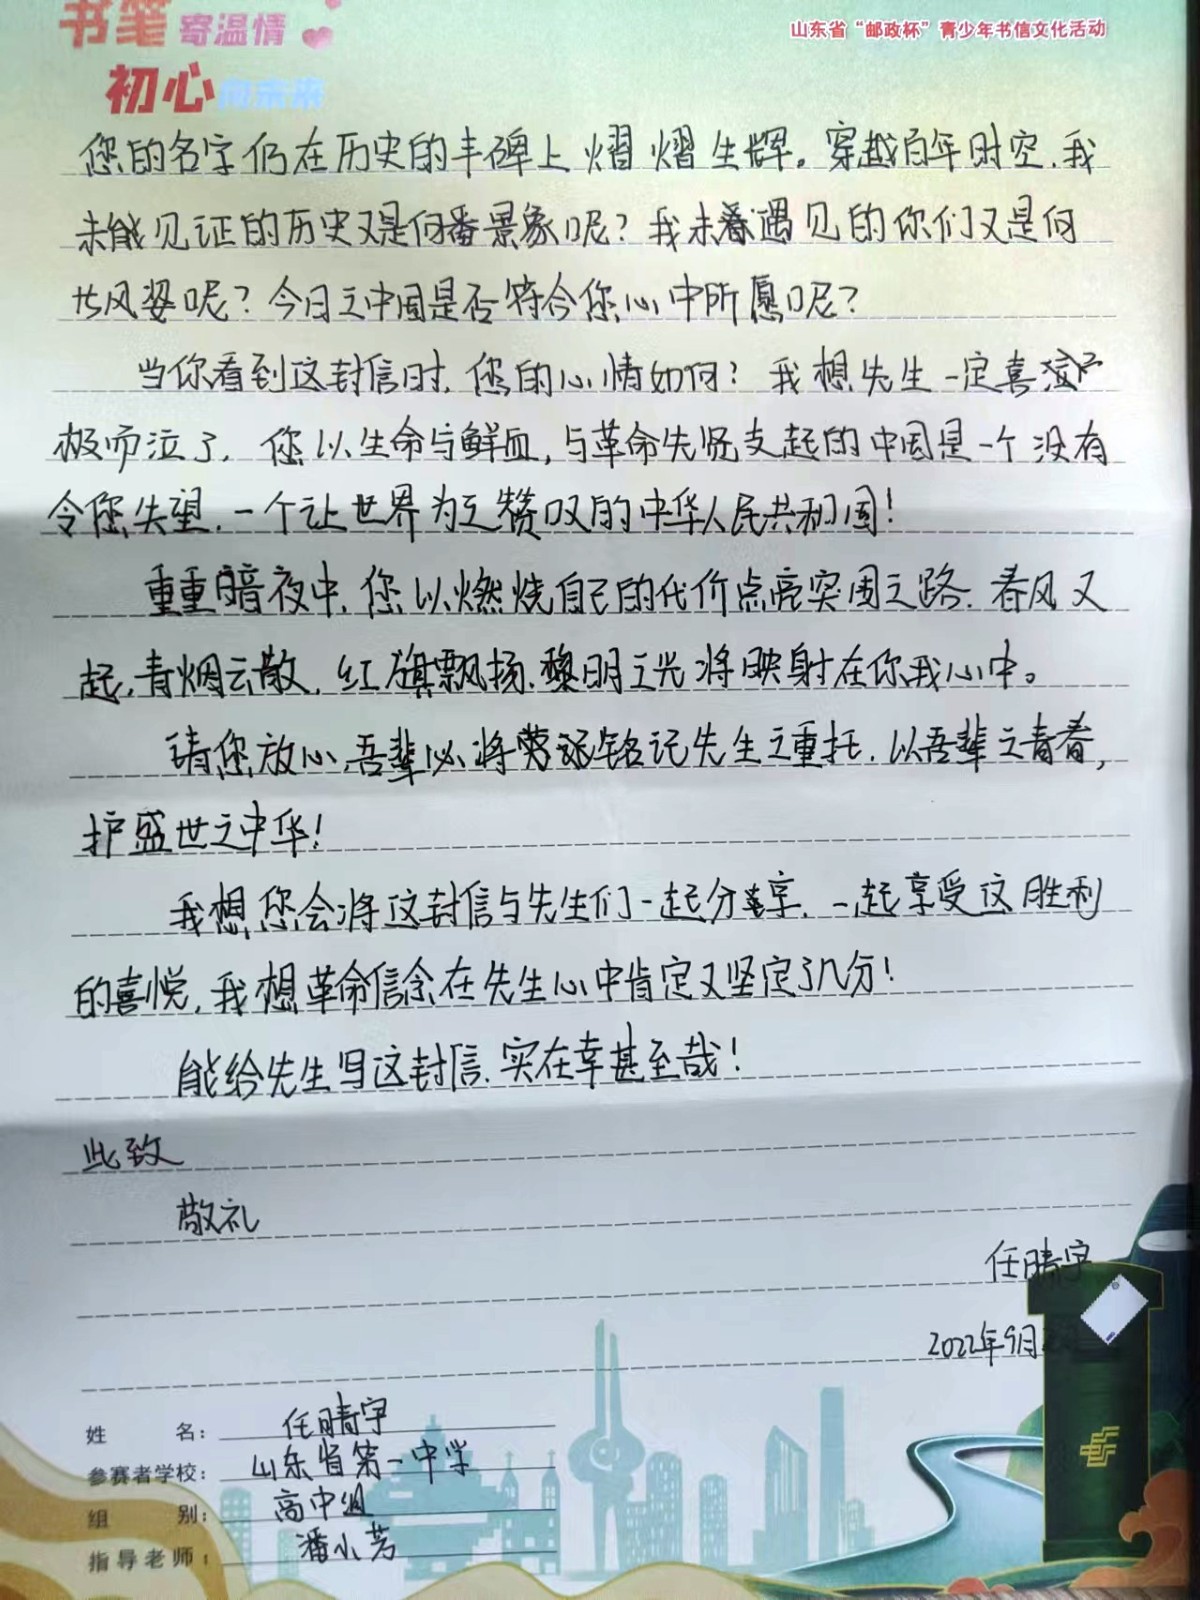 书笔寄温情
山东省“邮政杯”青少年书信文化活动
初心向未来
您的名字仍在历史的丰碑上熠熠生辉。穿越百年时空,我
未能见证的历史又是何番景象呢?我未遇见的你们又是何
等风姿呢?今日之中国是否符合您心中所愿呢?
当你看到这封信时,您的心情如何?我想先生一定喜
极而泣了,您以生命与鲜血,与革命先贤支起的中国是一个没有
令您失望,一个让世界为之赞叹的中华人民共和国!
重重暗夜中,您以燃烧自己的代价点亮突围之路,春风又
起,青烟云散,红旗飘扬,黎明之光将映射在你我心中。
请您放心,吾辈必将铭记先生之重托,以吾辈之青春,
护盛世之中华!
我想,您会将这封信与先生们一起分享,一起享受这胜利
的喜悦,我想革命信念在先生心中肯定又坚定了几分!
能给先生写这封信,实在幸甚至哉!
此致
敬礼
任晴宇
2022年9月
姓 名: 任晴宇
参赛者学校: 山东省第一中学
组 别: 高中组
指导老师: 潘小芳